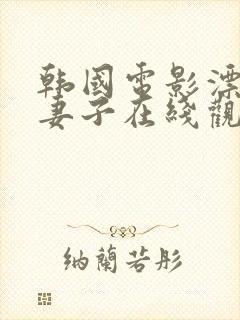 韩国電影漂
妻子在綫觀
納蘭若彤